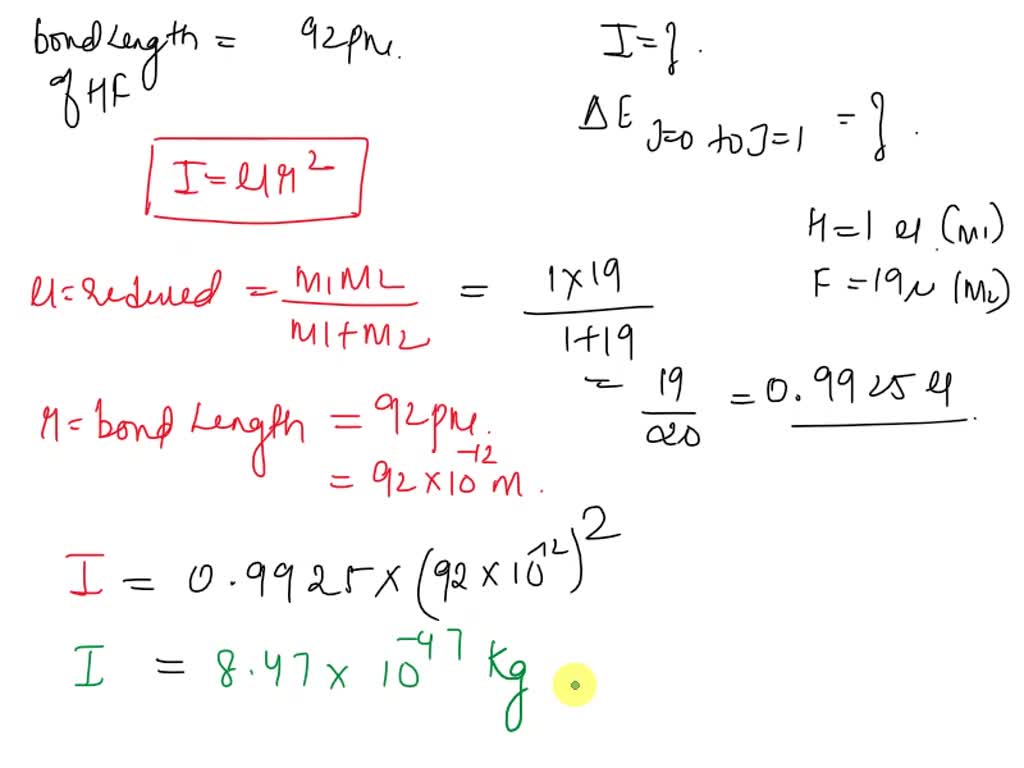 bond Length = 92pm.
of HF
I = ?.
ΔE J=0 to J=1 = ?.
I = μr²
H = 1 u (M1)
F = 19u (M2)
μ = reduced = M1M2 / M1+M2 = 1×19 / 1+19
= 19 / 20 = 0.9925 u
r = bond Length = 92pm.
= 92×10⁻¹² m.
I = 0.9925 × (92×10⁻¹²)²
I = 8.47 × 10⁻⁴⁷ Kg